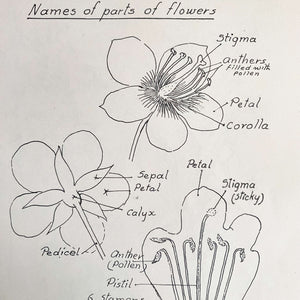 Names of parts of flowers
Stigma
Anthers
filled with
pollen
Petal
Corolla
Sepal
Petal
Calyx
Pedicel
Petal
Stigma
(sticky)
Anther
(Pollen)
Pistil
6 stamens